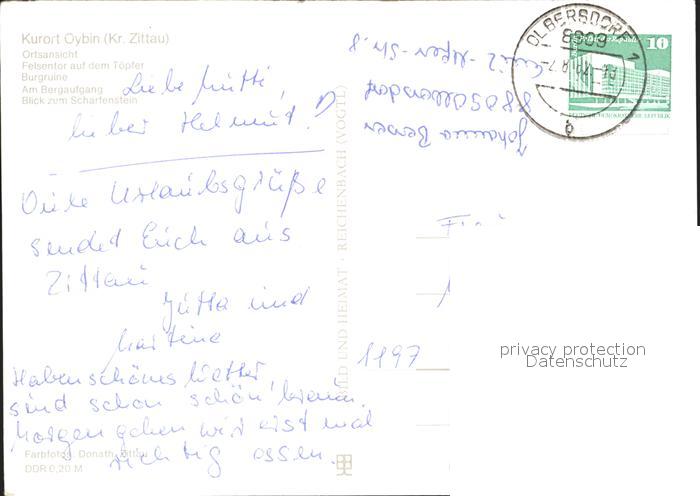 Kurort Oybin (Kr. Zittau)
Ortsansicht
Felsentor auf dem Töpfer
Burgruine
Am Bergaufgang
Blick zum Scharfenstein
Liebe Mutti,
lieber Helmut!
Viele Urlaubsgrüße
sendet Euch aus
Zittau
Jutta und
Martina
Haben schönes Wetter,
sind schon schön braun.
Morgen gehen wir erst mal
richtig essen.
Farbfotos: Donath, Zittau
DDR 0,20 M
BILD UND HEIMAT · REICHENBACH (VOGTL)
Johanna
8805 Olbersdorf
Str. 8
OLBERSDORF 1
8809
10
DEUTSCHE DEMOKRATISCHE REPUBLIK
1197
privacy protection
Datenschutz